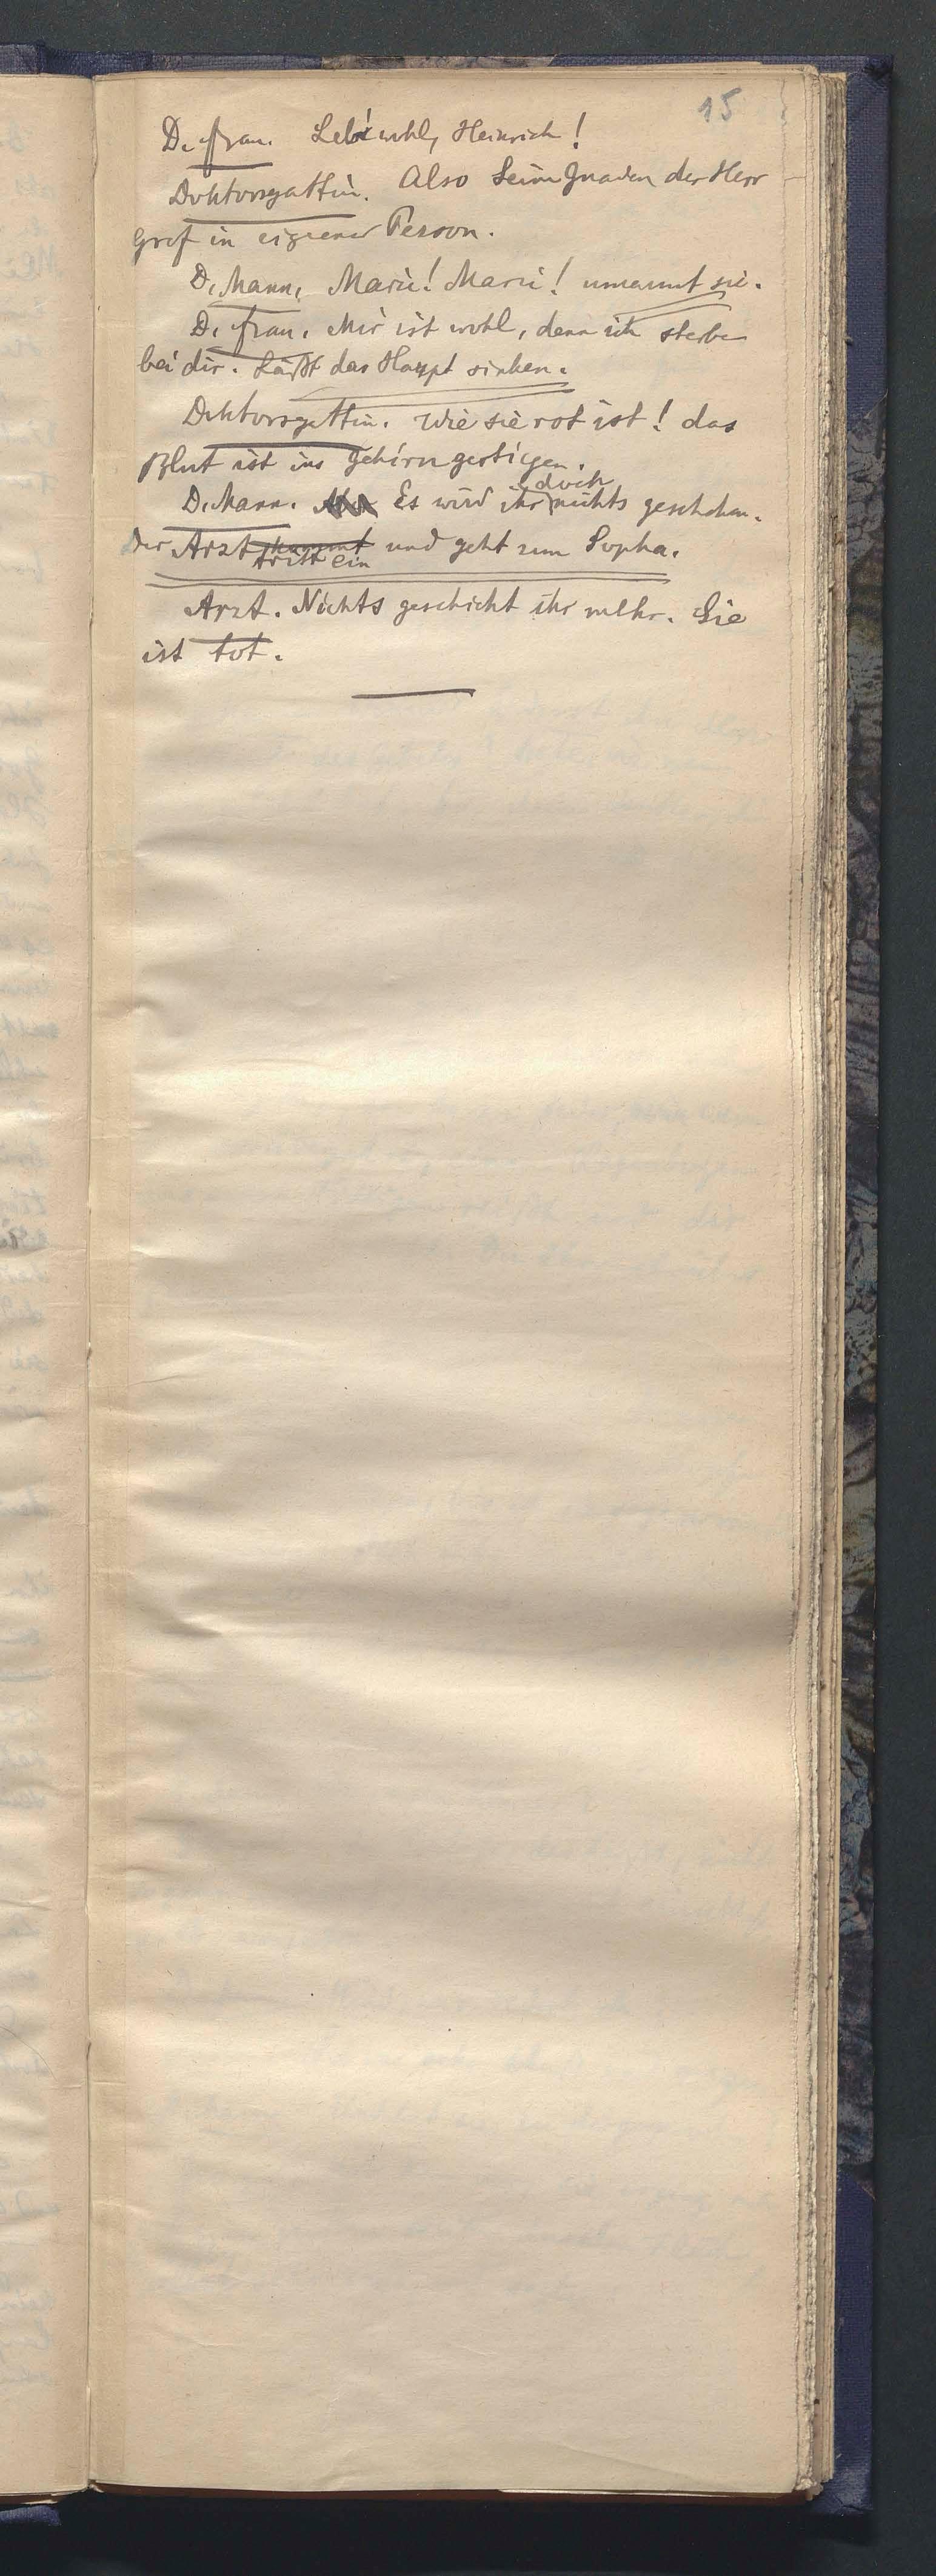 15
D. Frau. Leb' wohl, Heinrich!
Doktorsgattin. Also Seine Gnaden der Herr
Graf in eigener Person.
D. Mann. Marie! Marie! umarmt sie.
D. Frau. Mir ist wohl, denn ich sterbe
bei dir. Läßt das Haupt sinken.
Doktorsgattin. Wie sie rot ist! das
Blut ist ins Gehirn gestiegen.
D. Mann. Es wird ihr doch nichts geschehen.
Der Arzt kommt tritt ein und geht zum Sopha.
Arzt. Nichts geschieht ihr mehr. Sie
ist tot.